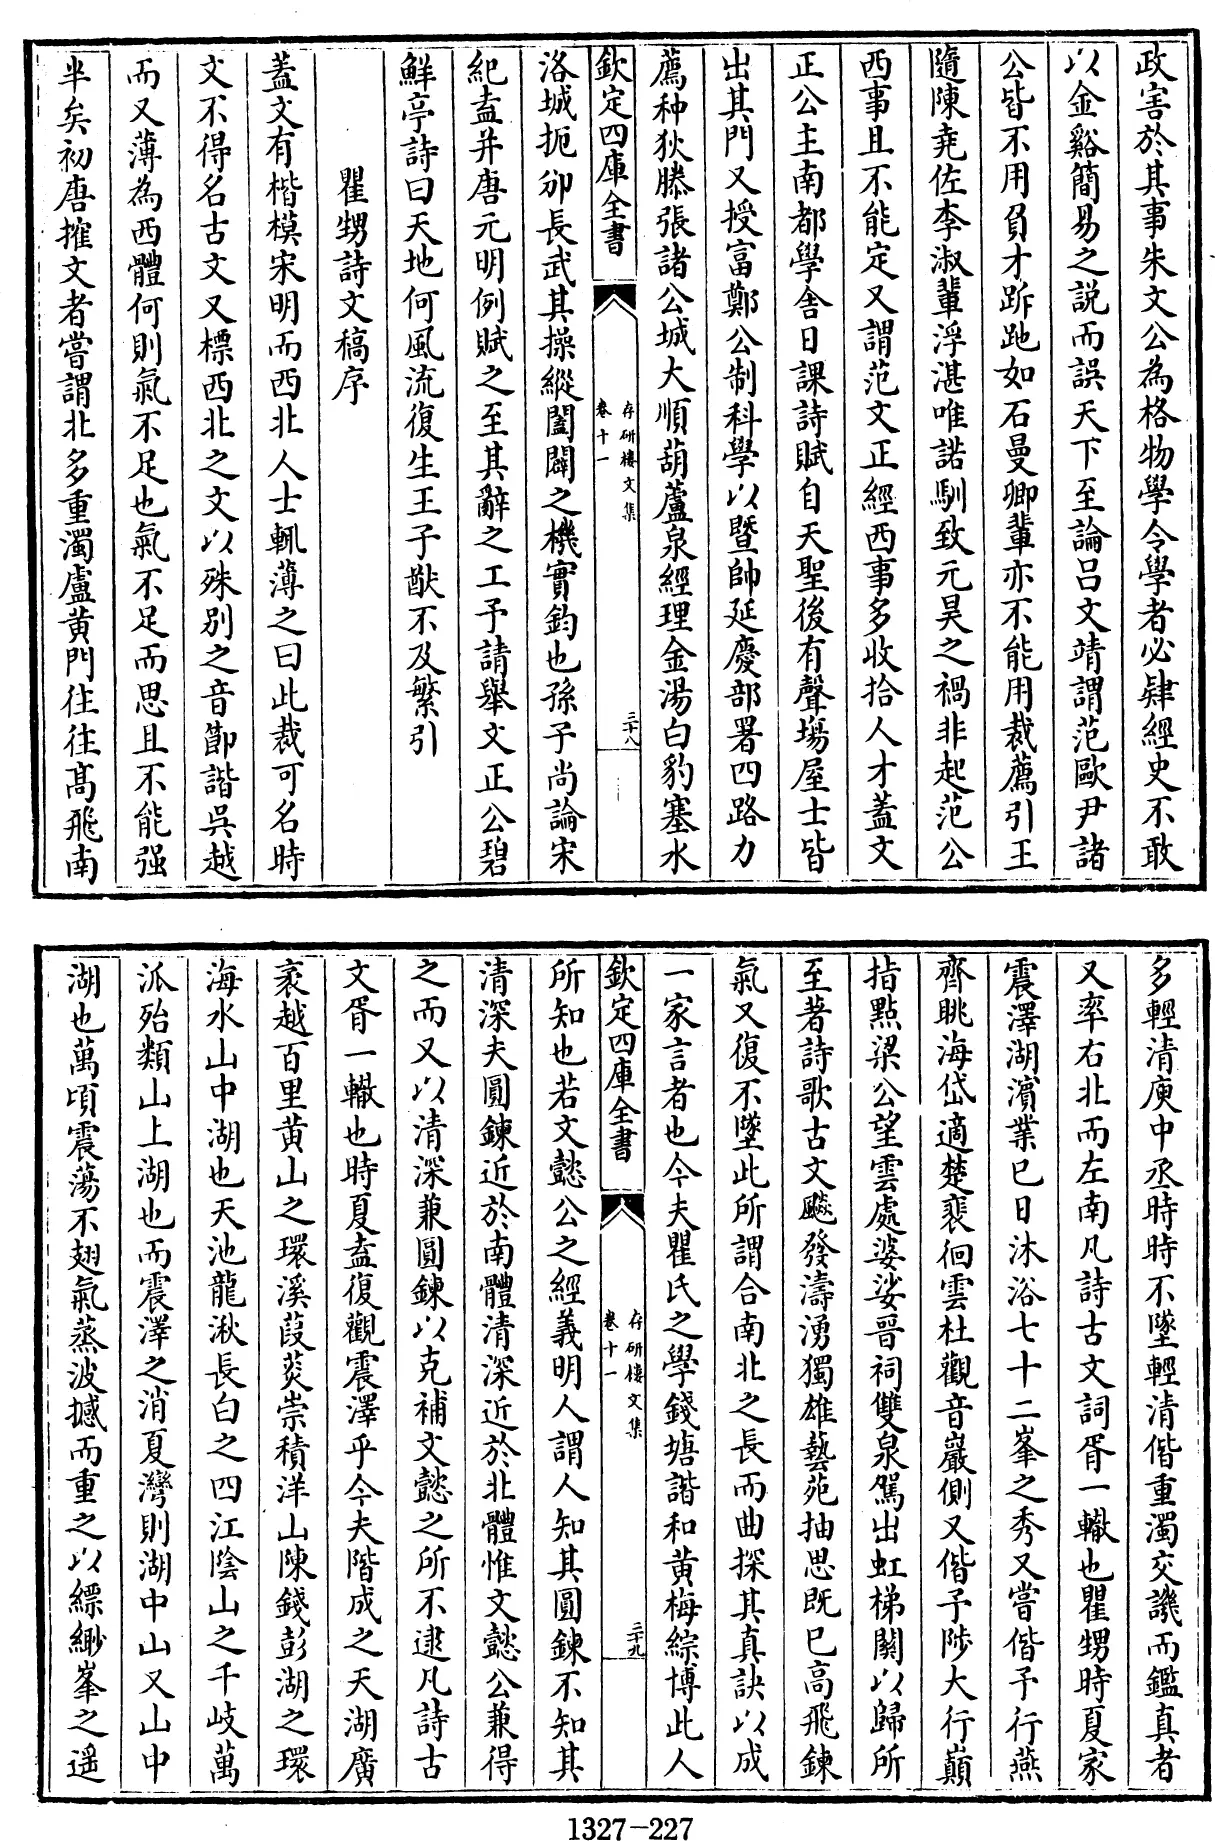 政害於其事朱文公為格物學令學者必肄經史不敢
以金谿簡易之説而誤天下至論吕文靖謂范歐尹諸
公皆不用負才跅弛如石曼卿輩亦不能用裁薦引王
隨陳堯佐李淑輩浮湛唯諾馴致元昊之禍非起范公
西事且不能定又謂范文正經西事多收拾人才蓋文
正公主南都學舍日課詩賦自天聖後有聲場屋士皆
出其門又授富鄭公制科學以暨帥延慶部署四路力
薦种狄滕張諸公城大順葫蘆泉經理金湯白豹塞水
欽定四庫全書
存研樓文集
卷十一
三十八
洛城扼邠長武其操縱闔闢之機實鈞也孫子尚論宋
紀盍并唐元明例賦之至其辭之工予請舉文正公碧
鮮亭詩曰天地何風流復生王子猷不及繁引
瞿甥詩文稿序
蓋文有楷模宋明而西北人士輒薄之曰此裁可名時
文不得名古文又標西北之文以殊别之音節諧吳越
而又薄為西體何則氣不足也氣不足而思且不能强
半矣初唐搉文者嘗謂北多重濁盧黄門往往髙飛南
多輕清庾中丞時時不墜輕清偕重濁交譏而鑑真者
又率右北而左南凡詩古文詞胥一轍也瞿甥時夏家
震澤湖濵業已日沐浴七十二峯之秀又嘗偕予行燕
齊眺海岱適楚裵徊雲杜觀音巖側又偕予陟大行巔
指點梁公望雲處婆娑晉祠雙泉駕出虹梯關以歸所
至著詩歌古文飈發濤湧獨雄藝苑抽思既已高飛鍊
氣又復不墜此所謂合南北之長而曲探其真訣以成
一家言者也今夫瞿氏之學錢塘諧和黄梅綜博此人
欽定四庫全書
存研樓文集
卷十一
三十九
所知也若文懿公之經義明人謂人知其圓鍊不知其
清深夫圓鍊近於南體清深近於北體惟文懿公兼得
之而又以清深兼圓鍊以克補文懿之所不逮凡詩古
文胥一轍也時夏盍復觀震澤乎今夫階成之天湖廣
袤越百里黄山之環溪葭菼崇積洋山陳錢彭湖之環
海水山中湖也天池龍湫長白之四江陰山之千岐萬
派殆類山上湖也而震澤之消夏灣則湖中山又山中
湖也萬頃震蕩不翅氣蒸波撼而重之以縹緲峯之遥
1327-227